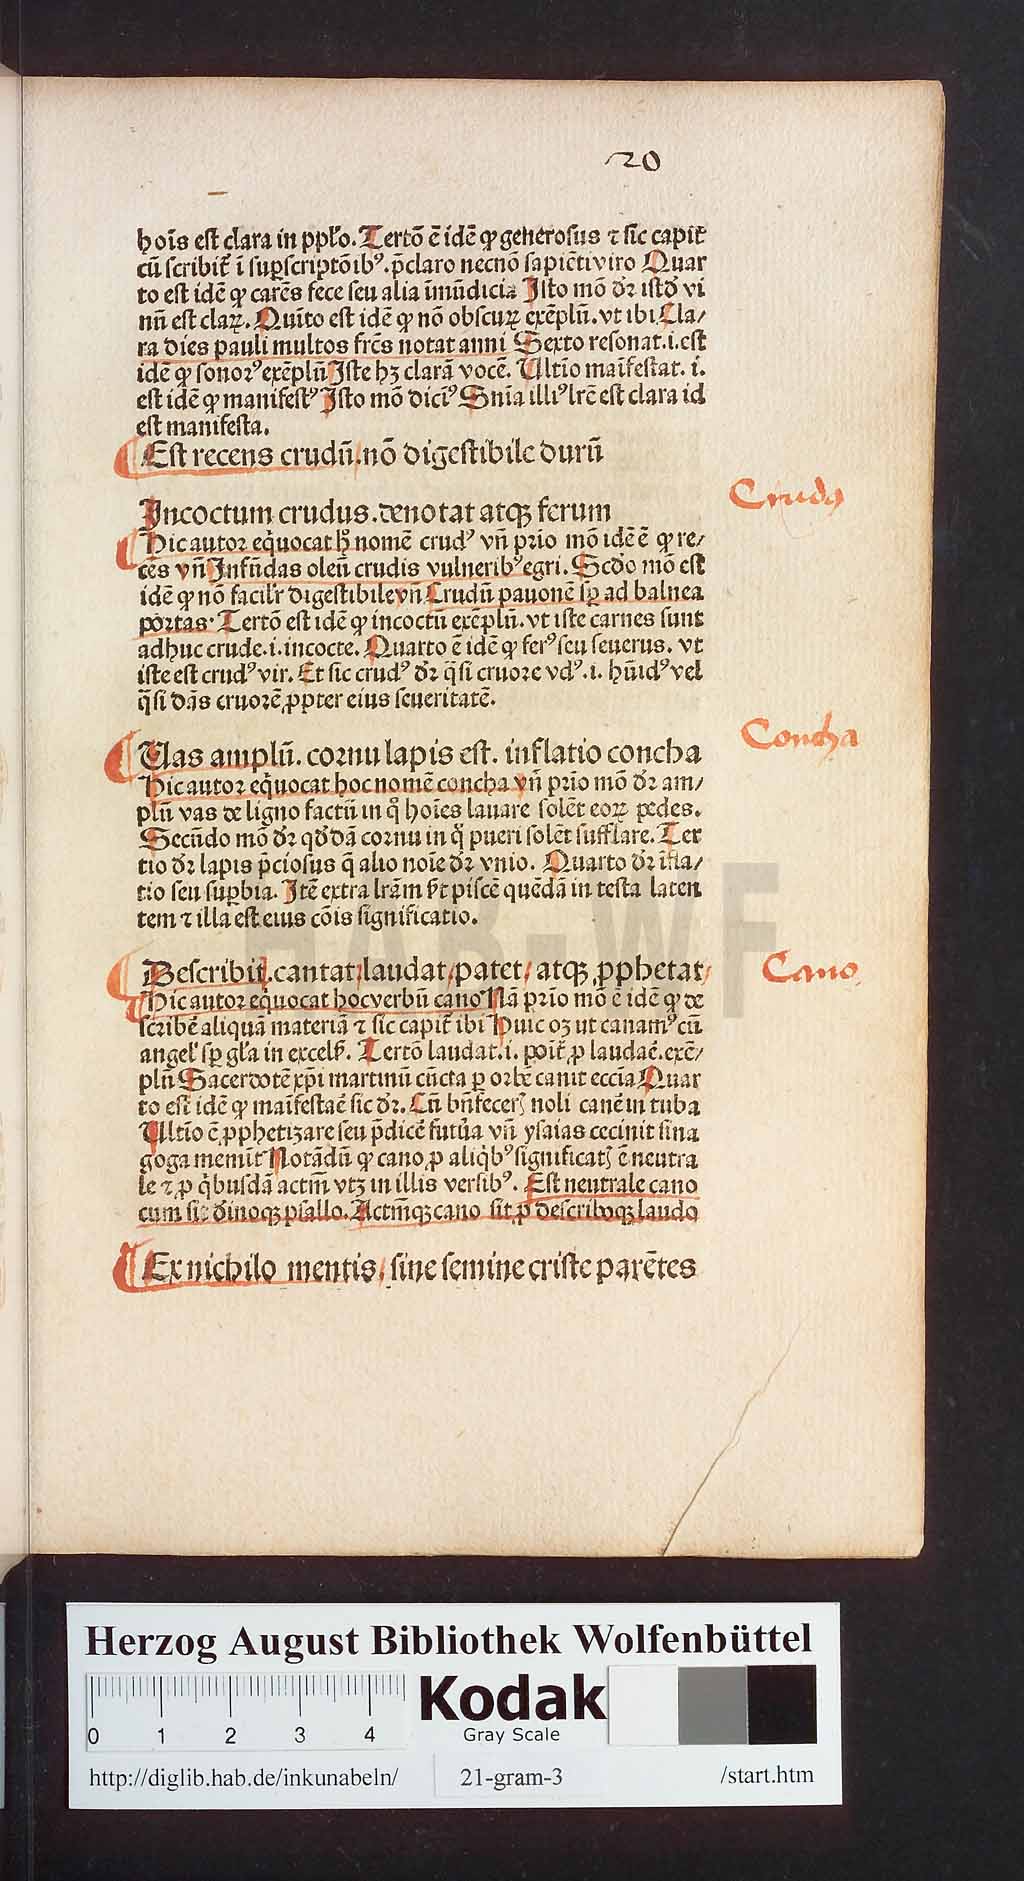 20
hoīs est clara in ppło. Tertō ē idē ꝙ generosus ⁊ sic capit᷑
cū scribit᷑ ī suꝑscriptōibꝰ. p̄claro necnō sapiēti viro Quar
to est idē ꝙ carēs fece seu alia īmūdicia Isto mō dr̄ istd̄ vi
nū est claꝝ. Quīto est idē ꝙ nō obscuꝝ exēplū. vt ibi Cla/
ra dies pauli multos frēs notat anni Sexto resonat .i. est
idē ꝙ sonorꝰ exēplū Iste hꝫ clarā vocē. Ultīo maīfestat .i.
est idē ꝙ manifestꝰ Isto mō dicīꝰ Snīa illiꝰ lrē est clara id
est manifesta.
Est recens crudū. nō digestibile durū
Crudꝰ
Incoctum crudus. denotat atqꝫ ferum
Hic autor eq̇uocat h̄ nomē crudꝰ vn̄ prīo mō idē ē ꝙ re/
cēs vn̄ Infūdas oleū crudis vulneribꝰ egri. Scd̄o mō est
idē ꝙ nō facilr̄ digestibile vn̄ Crudū pauonē sꝑ ad balnea
portas. Tertō est idē ꝙ incoctū exēplū. vt iste carnes sunt
adhuc crude .i. incocte. Quarto ē idē ꝙ ferꝰ seu seuerus. vt
iste est crudꝰ vir. Et sic crudꝰ dr̄ q̄si cruore vdꝰ .i. hūidꝰ vel
q̄si dās cruorē ꝓpter eius seueritatē.
Concha
Uas amplū. cornu lapis est. inflatio concha
Hic autor eq̇uocat hoc nomē concha vn̄ prīo mō dr̄ am/
plū vas de ligno factū in q̊ hoīes lauare solēt eoꝝ pedes.
Secūdo mō dr̄ qd̄dā cornu in q̊ pueri solēt sufflare. Ter
tio dr̄ lapis p̄ciosus q̄ alio noīe dr̄ vnio. Quarto dr̄ īfla/
tio seu suꝑbia. Itē extra lrām pt̄ piscē quēdā in testa laten
tem ⁊ illa est eius cōis significatio.
Cano
Describit. cantat laudat patet atqꝫ ꝓphetat
Hic autor eq̇uocat hoc verbū cano Nā prīo mō ē idē ꝙ de
scribē aliquā materiā ⁊ sic capit᷑ ibi Huic oꝫ ut canamꝰ cū
angeł sꝑ gła in excelẞ. Tertō laudat .i. poīt᷑ ꝓ laudaē. exē/
plū Sacerdotē xp̄i martinū cūcta ꝑ orbē canit ecc̄ia Quar
to est idē ꝙ maīfestaē sic dr̄. Cū bn̄fecerꝭ noli canē in tuba
Ultīo ē ꝓphetizare seu p̄dicē futura vn̄ ysaias cecinit sina
goga memīt Notādū ꝙ cano ꝓ aliq̇bꝰ significatꝭ ē neutra
le ⁊ ꝓ q̇busdā actīm vtꝫ in illis versibꝰ. Est neutrale cano
cum sit dīnoqꝫ psallo. Actīmqꝫ cano sit ꝓ describoqꝫ laudo
Ex nichilo mentis, sine semine criste parētes
HAB-WF
Herzog August Bibliothek Wolfenbüttel
0 1 2 3 4
Kodak
Gray Scale
http://diglib.hab.de/inkunabeln/ 21-gram-3 /start.htm